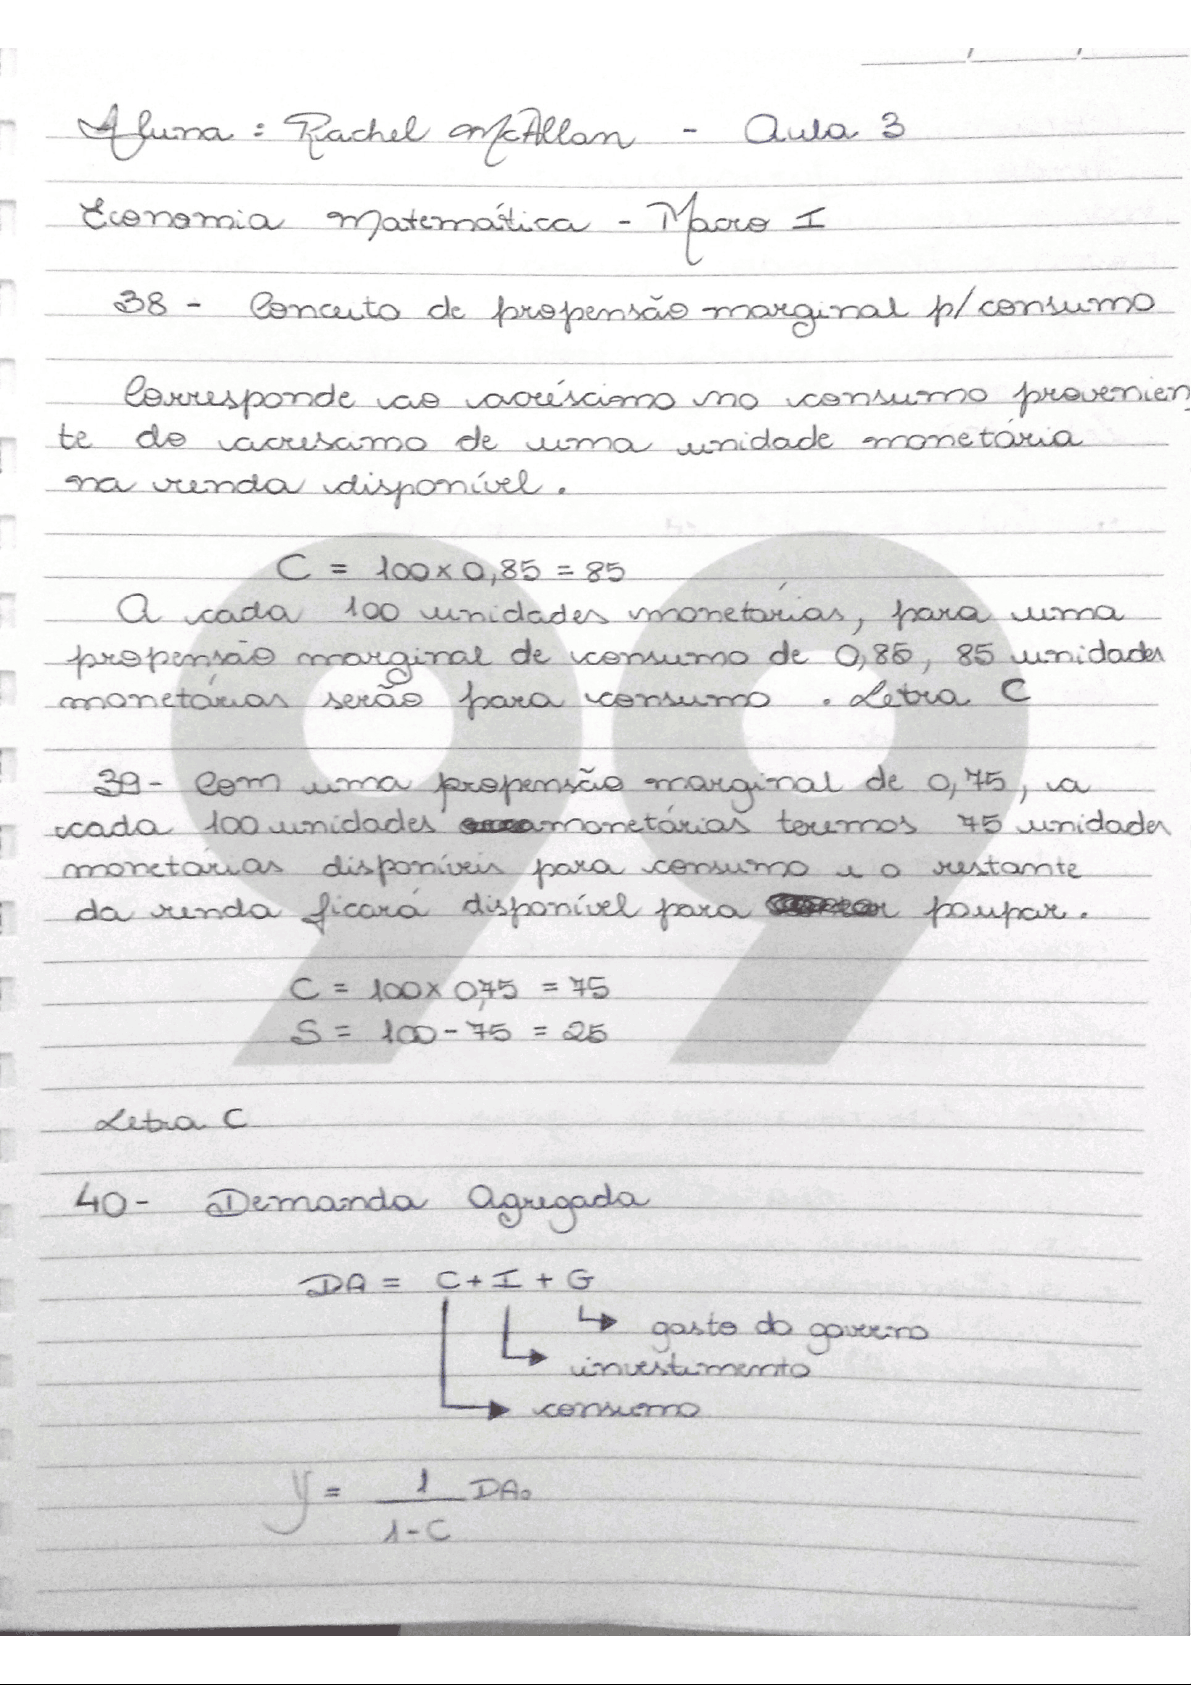 Aluna : Rachel McAllan - Aula 3
Economia Matemática - Macro I
38 - Conceito de propensão marginal p/ consumo
Corresponde ao acréscimo no consumo provenien
te do acrescimo de uma unidade monetária
na renda disponível.
C = 100 x 0,85 = 85
A cada 100 unidades monetárias, para uma
propensão marginal de consumo de 0,85, 85 unidades
monetárias serão para consumo . Letra C
39 - Com uma propensão marginal de 0,75, a
cada 100 unidades monetárias teremos 75 unidades
monetárias disponíveis para consumo e o restante
da renda ficará disponível para poupar.
C = 100 x 0,75 = 75
S = 100 - 75 = 25
Letra C
40 - Demanda Agregada
DA = C + I + G
gasto do governo
investimento
consumo
y = 1 DA₀
1 - C
99